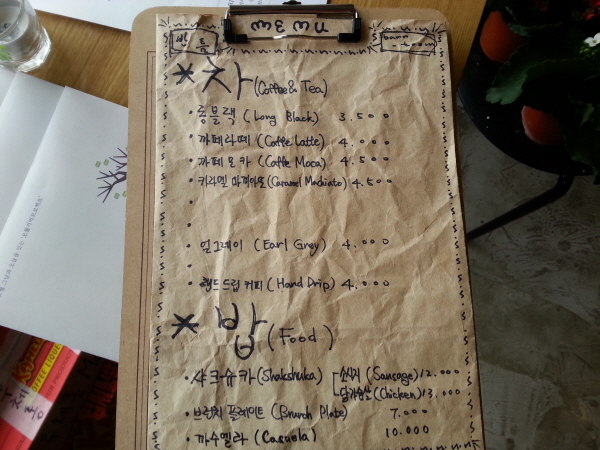 MENU
*차 (Coffee & Tea)
· 롱블랙 (Long Black) 3.500
· 까페라떼 (Caffe Latte) 4.000
· 까페모카 (Caffe Moca) 4.500
· 카라멜 마끼아또 (Caramel Machiato) 4.500
· 얼그레이 (Earl Grey) 4.000
· 핸드드립 커피 (Hand Drip) 4.000
*밥 (Food)
· 샤크슈카 (Shakshuka) 소시지 (Sausage) 12.000
닭가슴살 (Chicken) 13.000
· 브런치 플레이트 (Brunch Plate) 7.000
· 까수엘라 (Casuela) 10.000